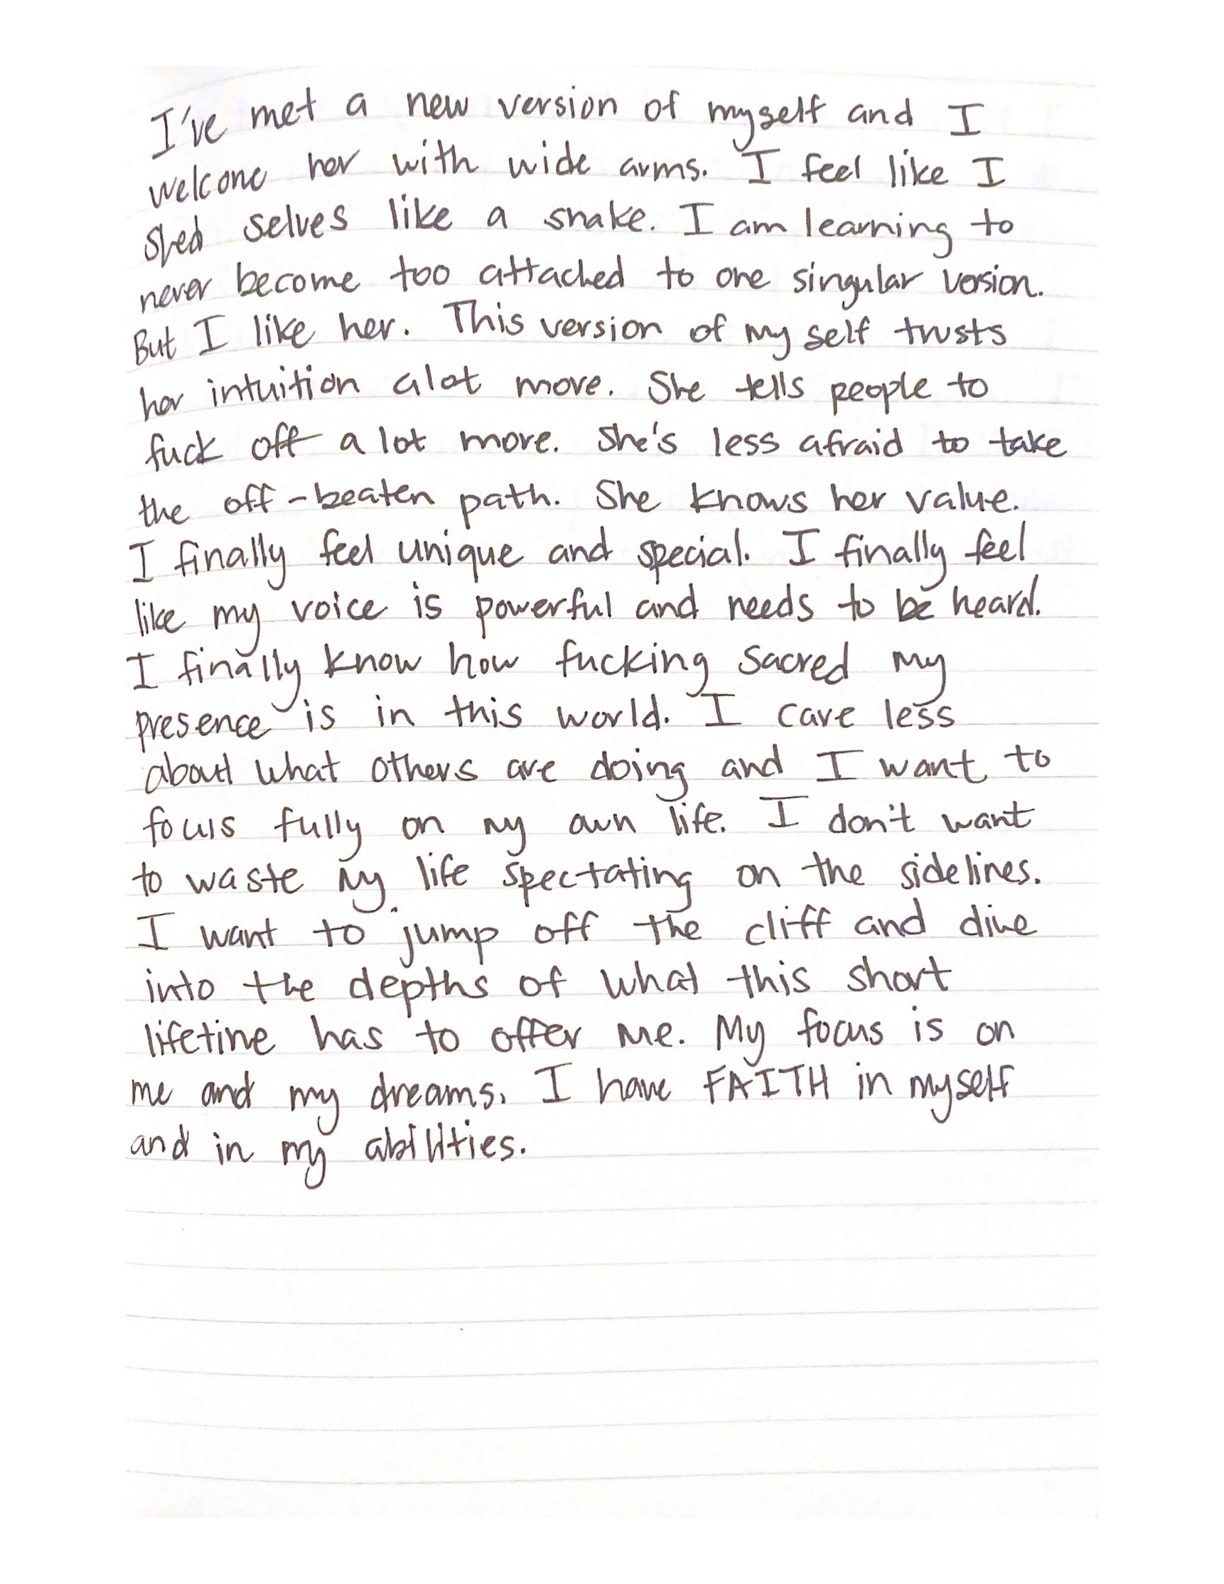 I've met a new version of myself and I
welcome her with wide arms. I feel like I
shed selves like a snake. I am learning to
never become too attached to one singular version.
But I like her. This version of my self trusts
her intuition alot more. She tells people to
fuck off a lot more. She's less afraid to take
the off-beaten path. She knows her value.
I finally feel unique and special. I finally feel
like my voice is powerful and needs to be heard.
I finally know how fucking sacred my
presence is in this world. I care less
about what others are doing and I want to
focus fully on my own life. I don't want
to waste my life spectating on the sidelines.
I want to jump off the cliff and dive
into the depths of what this short
lifetime has to offer me. My focus is on
me and my dreams. I have FAITH in myself
and in my abilities.